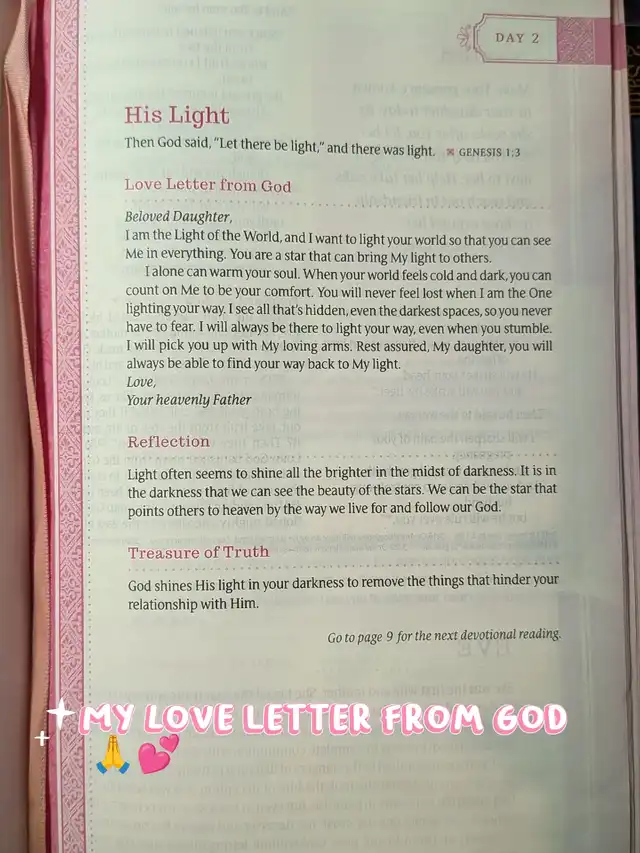 DAY 2
His Light
Then God said, "Let there be light," and there was light. ⌘ GENESIS 1:3
Love Letter from God
Beloved Daughter,
I am the Light of the World, and I want to light your world so that you can see
Me in everything. You are a star that can bring My light to others.
I alone can warm your soul. When your world feels cold and dark, you can
count on Me to be your comfort. You will never feel lost when I am the One
lighting your way. I see all that's hidden, even the darkest spaces, so you never
have to fear. I will always be there to light your way, even when you stumble.
I will pick you up with My loving arms. Rest assured, My daughter, you will
always be able to find your way back to My light.
Love,
Your heavenly Father
Reflection
Light often seems to shine all the brighter in the midst of darkness. It is in
the darkness that we can see the beauty of the stars. We can be the star that
points others to heaven by the way we live for and follow our God.
Treasure of Truth
God shines His light in your darkness to remove the things that hinder your
relationship with Him.
Go to page 9 for the next devotional reading.
MY LOVE LETTER FROM GOD
🙏💕